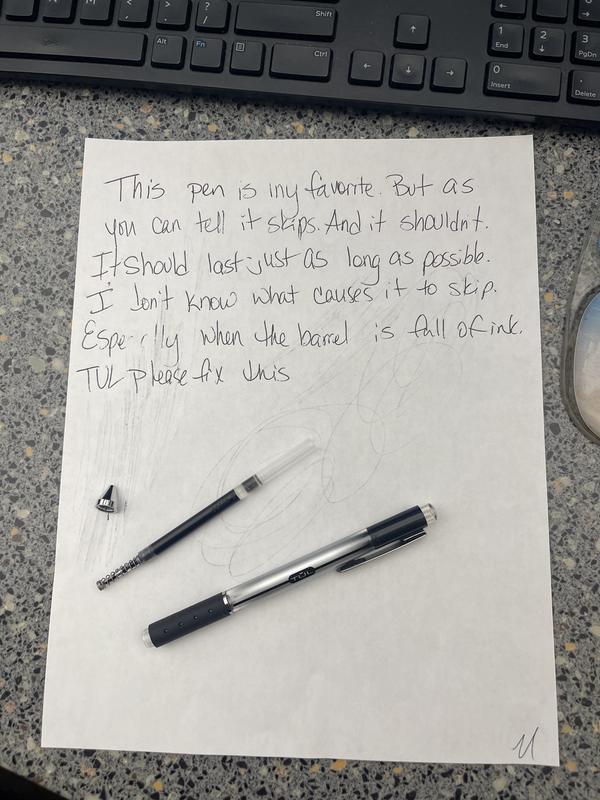 M
<
>
?
/
Shift
Alt
Fn
Ctrl
↑
←
↓
→
1
End
2
↓
3
PgDn
0
Insert
.
Delete
This pen is my favorite. But as
you can tell it skips. And it shouldn't.
It should last just as long as possible.
I don't know what causes it to skip.
Espe lly when the barrel is full of ink.
TUL please fix this
TUL